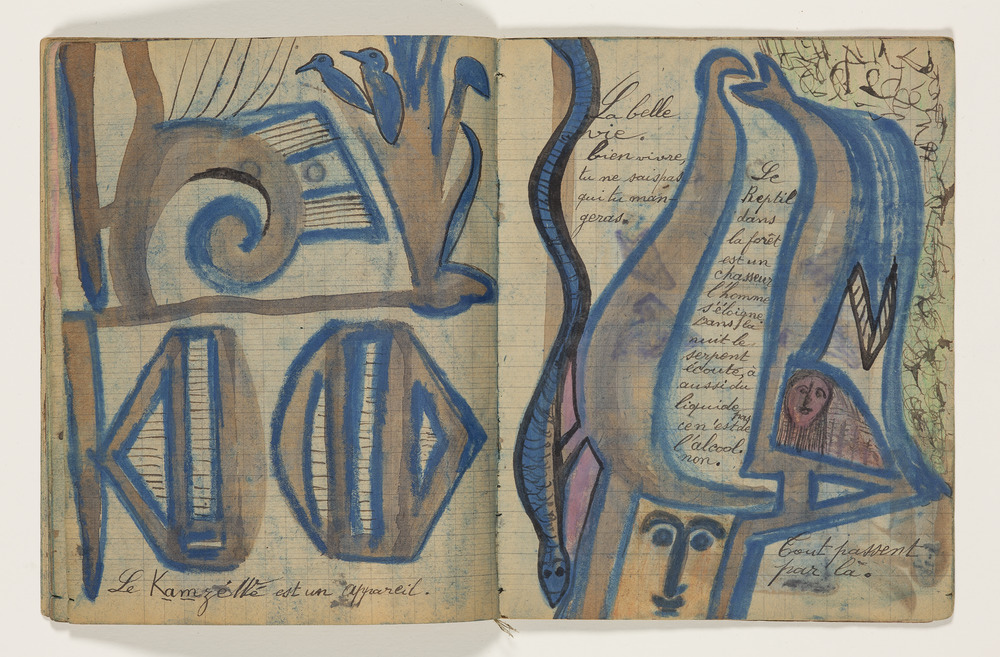 Le Kamzétte est un appareil.
La belle
vie.
bien vivre,
tu ne sais pas
qui tu man-
geras.
Le
Reptil
dans
la forêt
est un
chasseur
l'homme
s'éloigne
Dans la
nuit le
serpent
écoute, à
aussi du
liquide
pas
ce n'est de
l'alcool.
non.
Tout passent
par là.